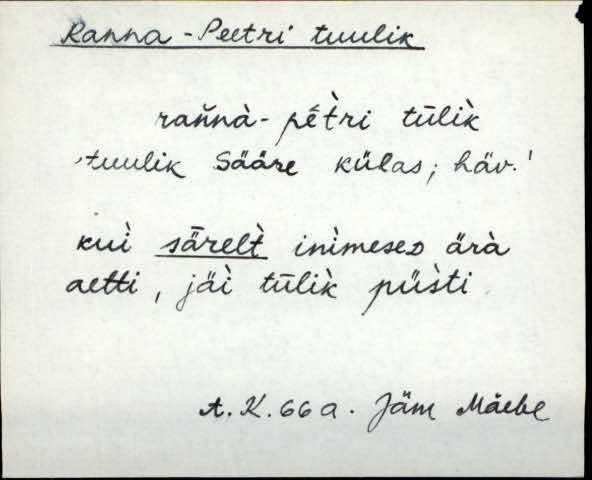 Ranna-Peetri tuulik
rañnà- pḗt̀ri tūlìk
'tuulik Sääre külas; häv.'
kuì sārelt̀ inìmeseD ärà
aetti, jäì tūlìk püsti
A.K. 66 a. Jäm Mäebe